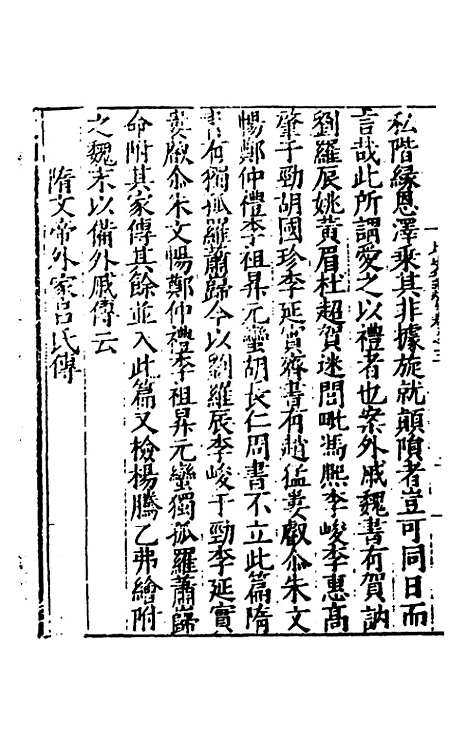 私階緣恩澤乘其非據旋就顛隕者豈可同日而
言哉此所謂愛之以禮者也案外戚魏書有賀訥
劉羅辰姚黃眉杜超賀迷閭毗馮熙李峻李惠高
肇于勁胡國珍李延寔齊書有趙猛婁叡尒朱文
暢鄭仲禮李祖昇元蠻胡長仁周書不立此篇隋
書有獨孤羅蕭巋今以劉羅辰李峻于勁李延寔
婁叡尒朱文暢鄭仲禮李祖昇元蠻獨孤羅蕭巋
命附其家傳其餘並入此篇又檢楊騰乙弗繪附
之魏末以備外戚傳云
隋文帝外家呂氏傳